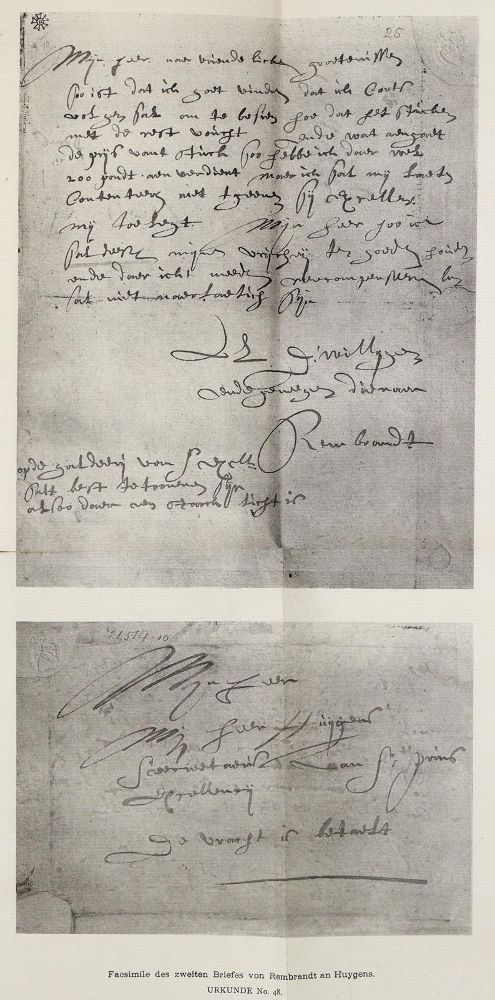 25
Mijn heer naer vriendelicken groetenissen
soo ist dat ich goet vinden dat ich Corts
volgen sal om te besien hoe dat het stucken
met de rest voucht ende wat aengaet
de prijs vant stuck soo hebbe ich daer wel
200 pondt aen verdient maer ich sal mij laeten
Contenteeren met tgeenen sij excelle
mij toe legt. Mijn heer soo
sal mijnen vrijheij ten goeden houden
ende daer ich meede
sal niet naer laetich sijn
UE D:willygen
ende geneegen dienaer
Rembrandt
opde galdeerij van S excelle
salt best te toonenen sijn
alsoo daer een starck licht is
Mijn heer
Mijn heer Huijgens
Secretaris van Sr prins
Excellencij
De vracht is betaelt
Facsimile des zweiten Briefes von Rembrandt an Huygens.
URKUNDE No. 48.